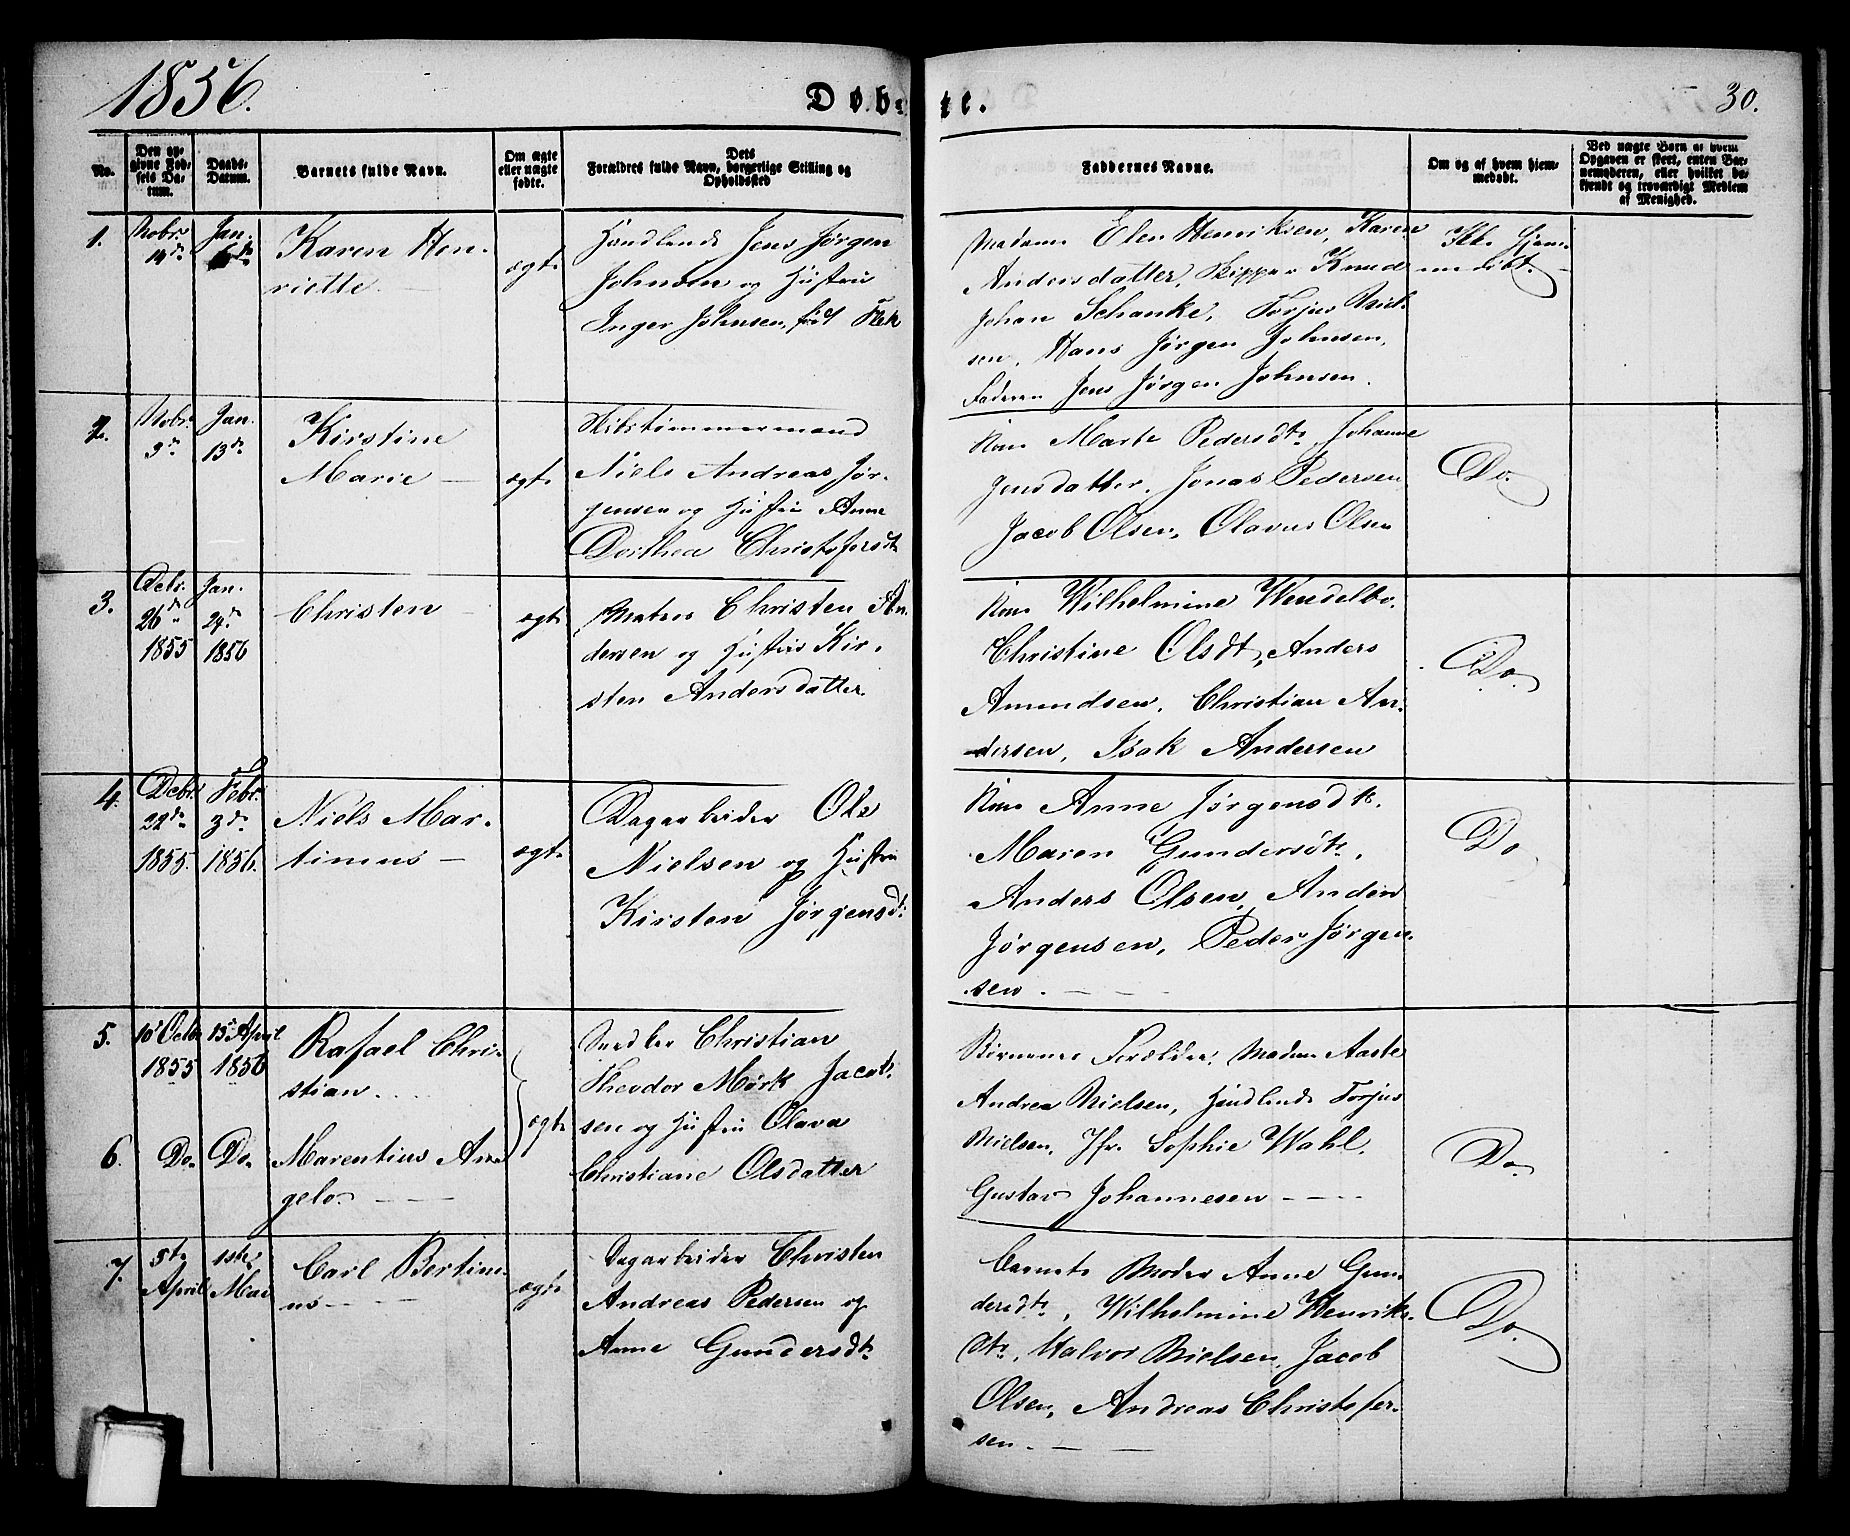 1856.
Døbte.
30.
No.
Den opgivne Fødsels Datum.
Daabs-Datum.
Barnets fulde Navn.
Om ægte eller uægte fødte.
Dets Forældres fulde Navn, borgerlige Stilling og Opholdssted
Faddernes Navne.
Om og af hvem hjemmedøbt.
Ved uægte Børn af hvem Opgaven er skeet, enten Barnemoderen, eller hvilket bekjendt og troværdigt Medlem af Menighed.
1.
Nobr.
14de
Jan.
6de
Karen Hen-
riette.
ægte
Handlende Jens Jørgen
Johnsen og Hustru
Inger Johnsen, født Flek
Madame Elen Henriksen, Karen
Andersdatter, Skipper Knud
Johan Schanke, Torjus Niel-
sen, Hans Jørgen Johnsen,
Faderen Jens Jørgen Johnsen.
Ikke hjem-
medøbt.
2.
Nobr.
3de
Jan.
13de
Kirstine
Marie —
ægte
Skibstimmermand
Niels Andreas Jør-
gensen og Hustru Anne
Dorthea Christofersdt
Kone Marte Pedersdtr, Johanne
Jensdatter, Jonas Pedersen
Jacob Olsen, Olavus Olsen
Do.
3.
Octbr.
26de
1855
Jan.
24de
1856
Christen —
ægte
Matros Christen An-
dersen og Hustru Kir-
sten Andersdatter
Kone Wilhelmine Wendelbo.
Christine Olsdt, Anders
Amundsen, Christian An-
dersen, Isak Andersen
Do.
4.
Decbr.
22de
1855.
Febr.
3de
1856.
Niels Mar-
tinius —
ægte
Dagarbeider Ole
Nielsen og Hustru
Kirsten Jørgensdt.
Kone Anne Jørgensdtr.
Maren Gundersdtr,
Anders Olsen, Anders
Jørgensen, Peder Jørgen-
sen. — — —
Do
5.
10de Octbr
1855
15de April
1856
Rafael Chri-
stian....
6.
Do.
Do.
Marentius An-
gelo. — —
ægte
Snedker Christian
Theodor Mørk Jacob-
sen og Hustru Olava
Christiane Olsdatter
Børnenes Forældre, Madam Aaste
Andrea Nielsen, Handlende Torjus
Nielsen, Jfr. Sophie Wahl,
Gustav Johannesen — — —
Do.
7.
5te
April
1ste
Mai
Carl Bertini-
us — — —
ægte
Dagarbeider Christen
Andreas Pedersen og
Anne Gundersdtr
Barnets Moder Anne Gun-
dersdtr, Wilhelmine Henriks-
dtr, Halvor Nielsen, Jacob
Olsen, Andreas Christofer-
sen. — —
Do.